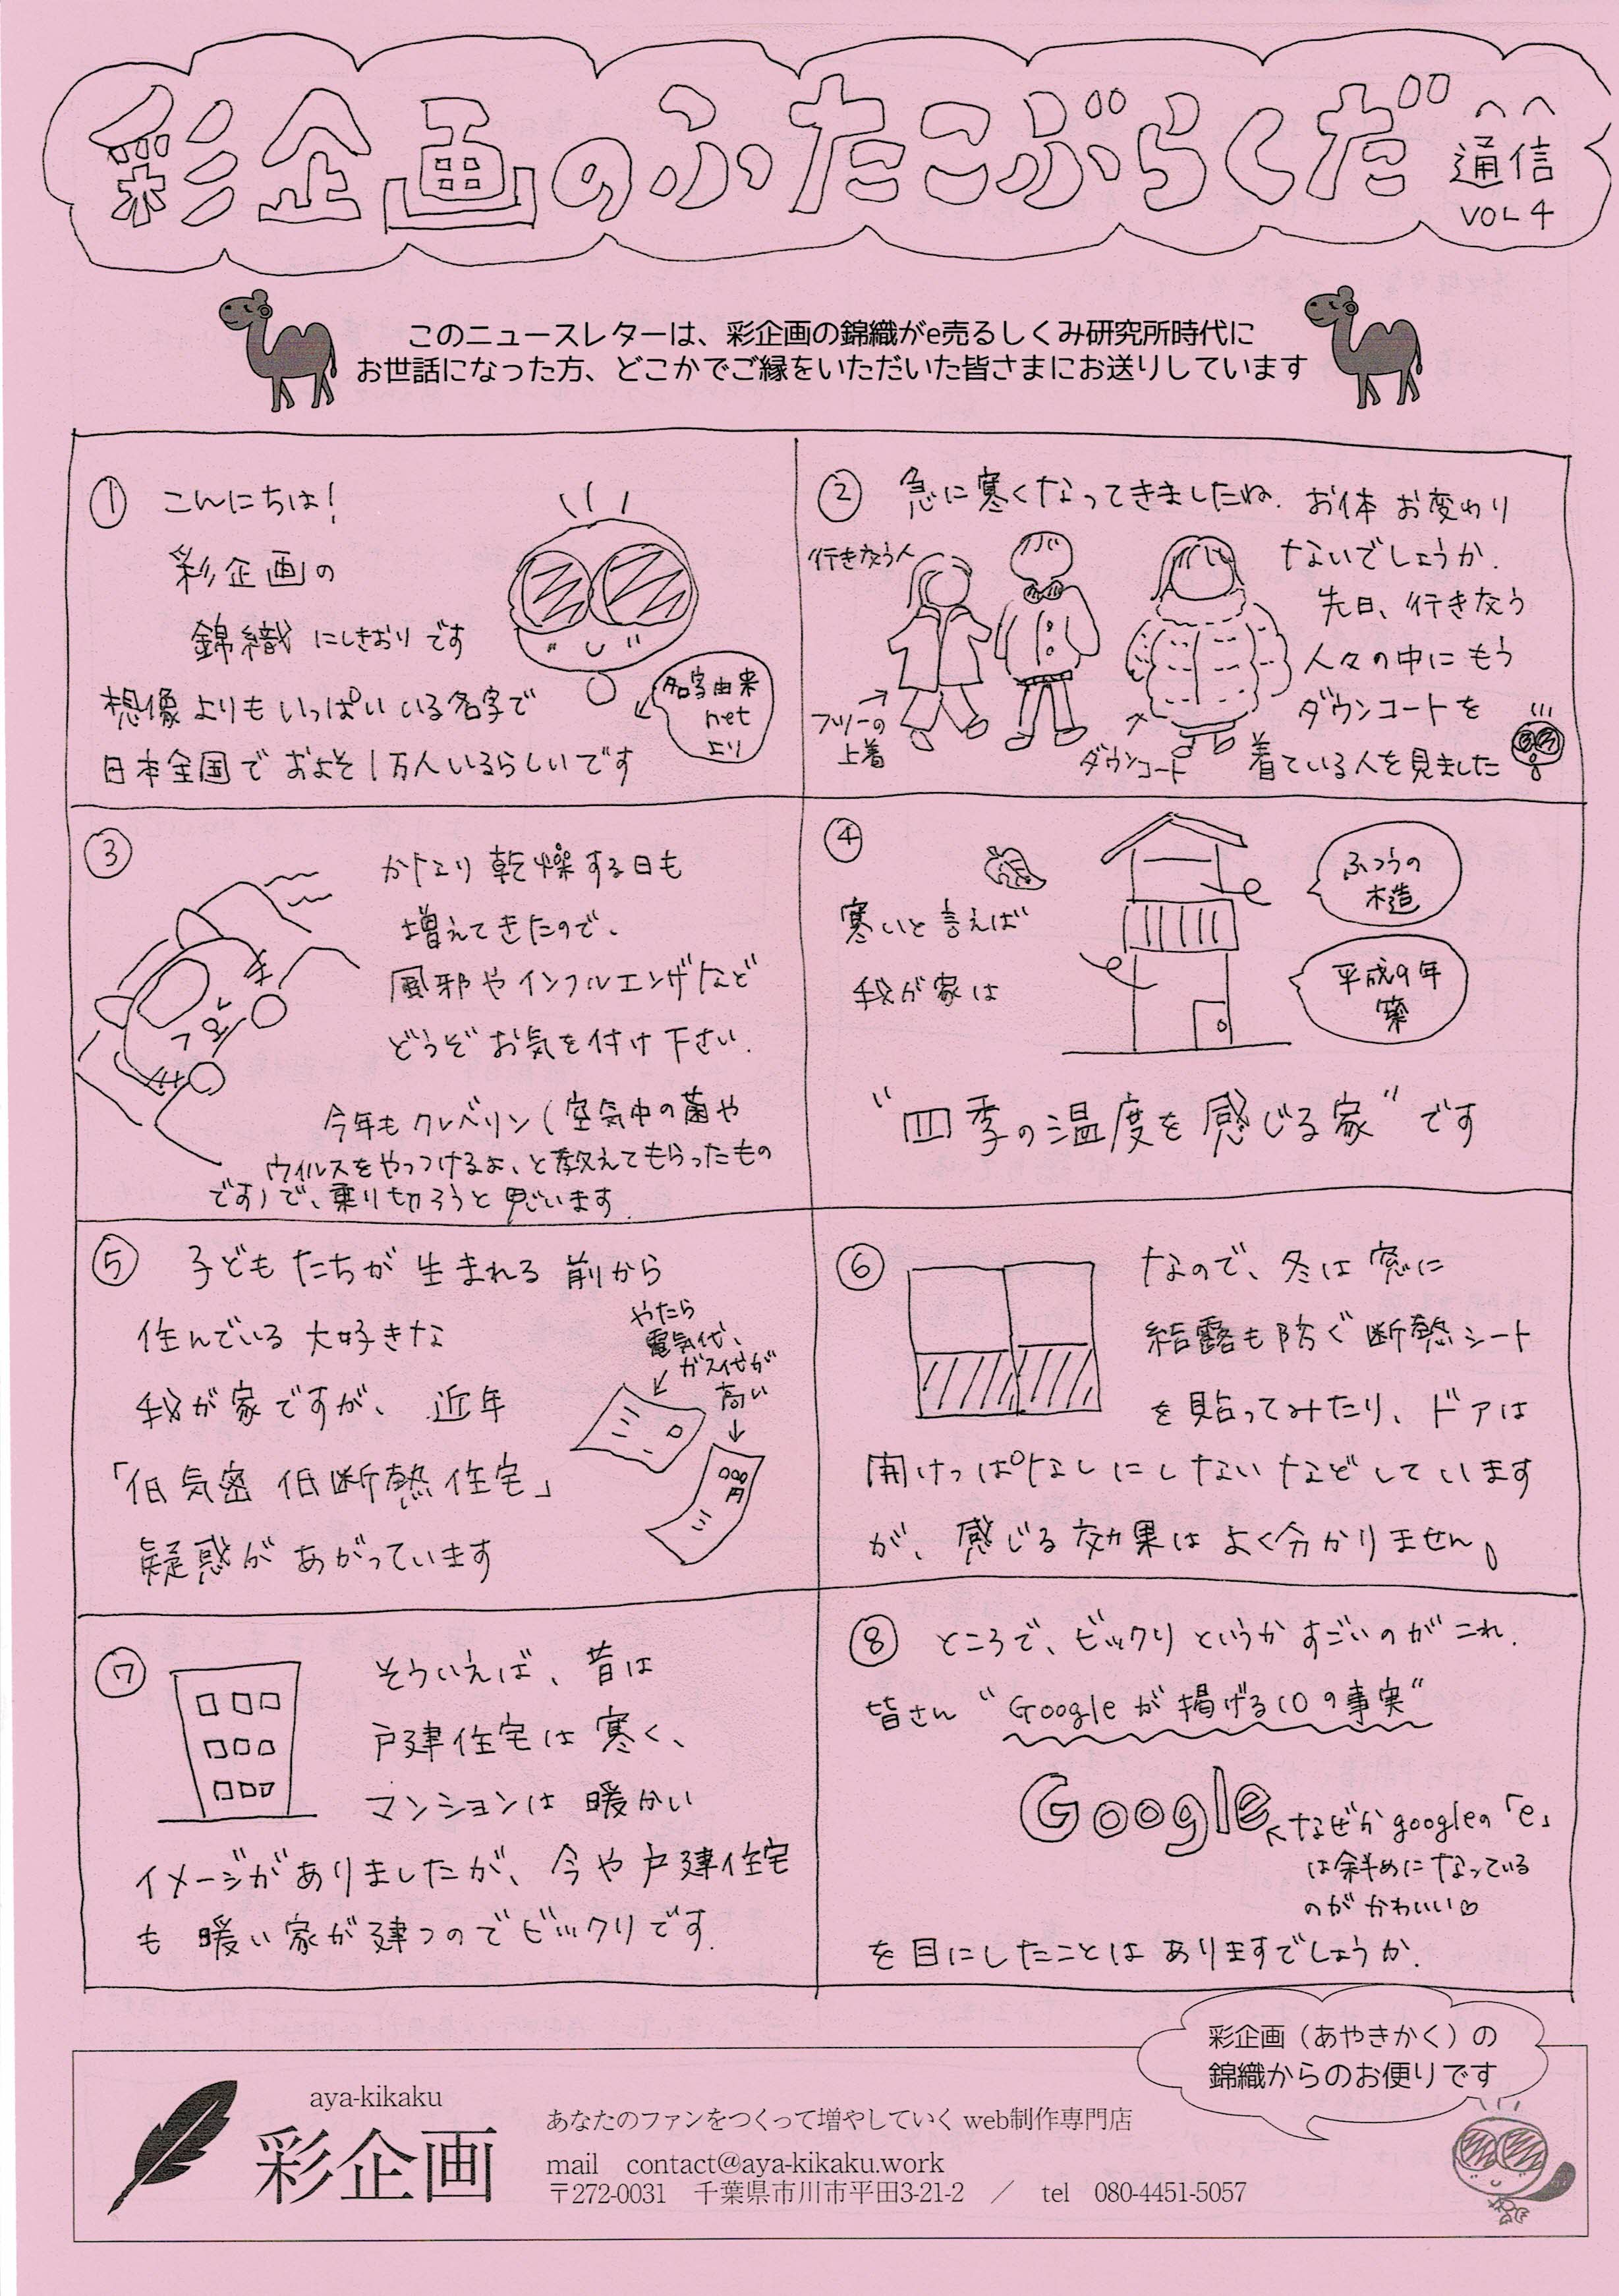 彩企画のふたこぶらくだ
通信
VOL4
このニュースレターは、彩企画の錦織がe売るしくみ研究所時代に
お世話になった方、どこかでご縁をいただいた皆さまにお送りしています
① こんにちは!
彩企画の
錦織 にしきおりです
想像よりもいっぱいいる名字で
日本全国でおよそ1万人いるらしいです
名字由来
net
より
② 急に寒くなってきましたね. お体 お変わり
ないでしょうか.
先日、行き交う
人々の中にもう
ダウンコートを
着ている人を見ました
行き交う人
フリーの
上着
ダウンコート
③ かなり乾燥する日も
増えてきたので、
風邪やインフルエンザなど
どうぞお気を付け下さい.
今年もクレベリン(空気中の菌や
ウイルスをやっつけるよ、と教えてもらったもの
です)で、乗り切ろうと思います.
④
寒いと言えば
我が家は
ふつうの
木造
平成9年
築
"四季の温度を感じる家"です
⑤ 子どもたちが生まれる前から
住んでいる大好きな
我が家ですが、近年
「低気密低断熱住宅」
疑惑があがっています
やたら
電気代、
ガス代が
高い
000
円
⑥ なので、冬は窓に
結露も防ぐ断熱シート
を貼ってみたり、ドアは
開けっぱなしにしないなどしています
が、感じる効果はよく分かりません。
⑦ そういえば、昔は
戸建住宅は寒く、
マンションは暖かい
イメージがありましたが、今や戸建住宅
も暖い家が建つのでビックリです.
⑧ ところで、ビックリというかすごいのがこれ.
皆さん"Googleが掲げる10の事実"
Google
なぜかgoogleの「e」
は斜めになっている
のがかわいい♡
を目にしたことはありますでしょうか.
彩企画（あやきかく）の
錦織からのお便りです
aya-kikaku
彩企画
あなたのファンをつくって増やしていく web制作専門店
mail contact@aya-kikaku.work
〒272-0031 千葉県市川市平田3-21-2 ／ tel 080-4451-5057